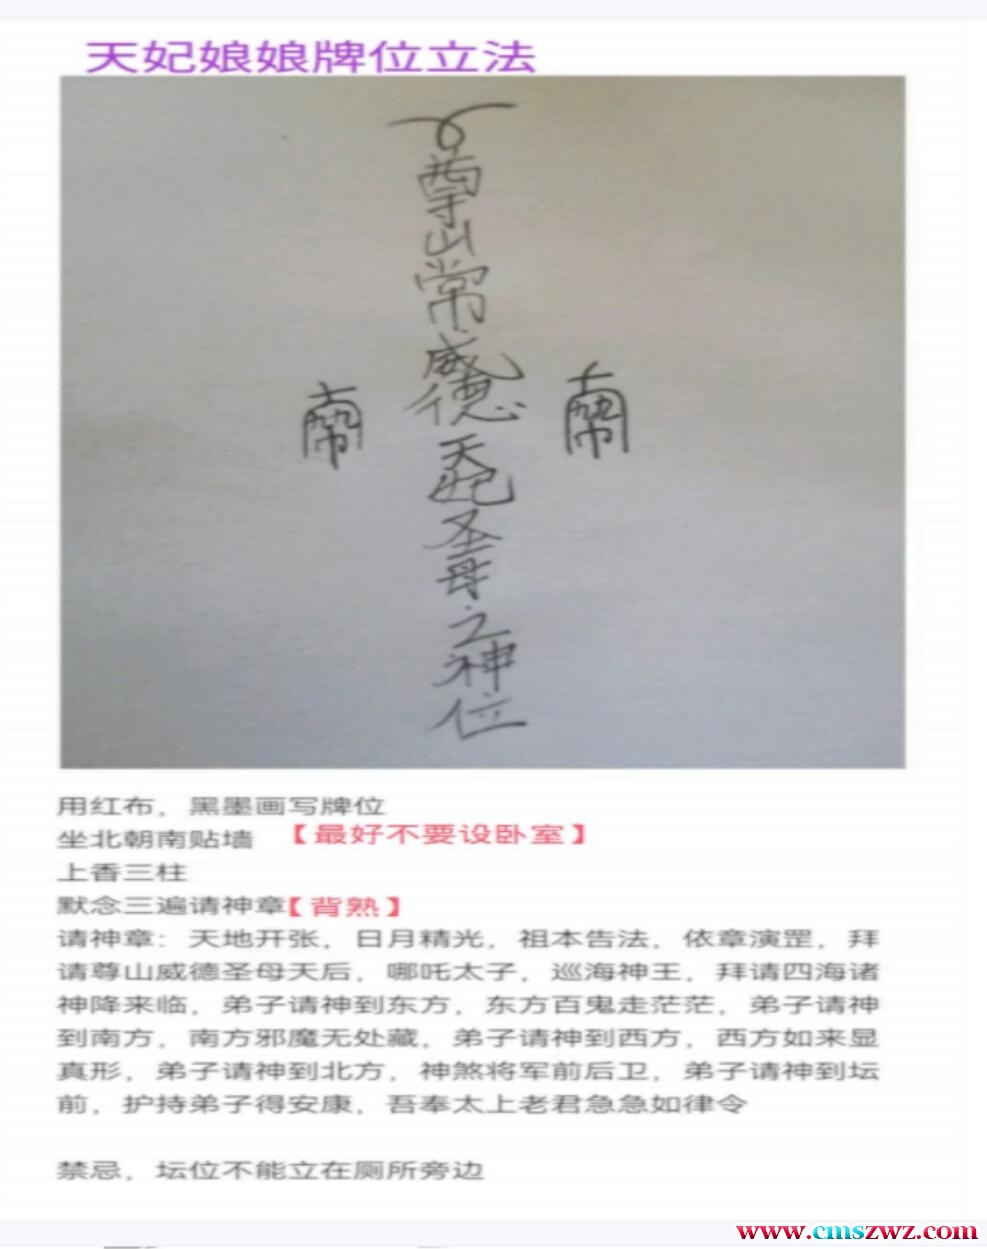 天妃娘娘牌位立法
尊山常威德天妃圣母之神位
用红布，黑墨画写牌位
坐北朝南贴墙 【最好不要设卧室】
上香三柱
默念三遍请神章【背熟】
请神章：天地开张，日月精光，祖本告法，依章演罡，拜
请尊山威德圣母天后，哪吒太子，巡海神王，拜请四海诸
神降来临，弟子请神到东方，东方百鬼走茫茫，弟子请神
到南方，南方邪魔无处藏，弟子请神到西方，西方如来显
真形，弟子请神到北方，神煞将军前后卫，弟子请神到坛
前，护持弟子得安康，吾奉太上老君急急如律令
禁忌，坛位不能立在厕所旁边
www.cmszwz.com